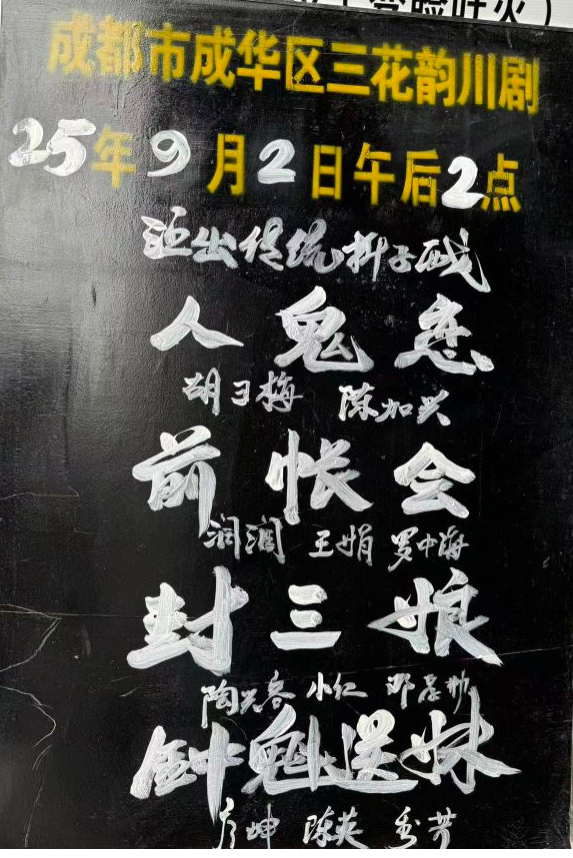 成都市成华区三花韵川剧
25年9月2日午后2点
演出传统折子戏
人鬼恋
胡习梅 陈加兴
前帐会
润润 王娟 罗中海
封三娘
陶兴容 小仁 邓
钟魁送妹
彦坤 陈英 秀芳